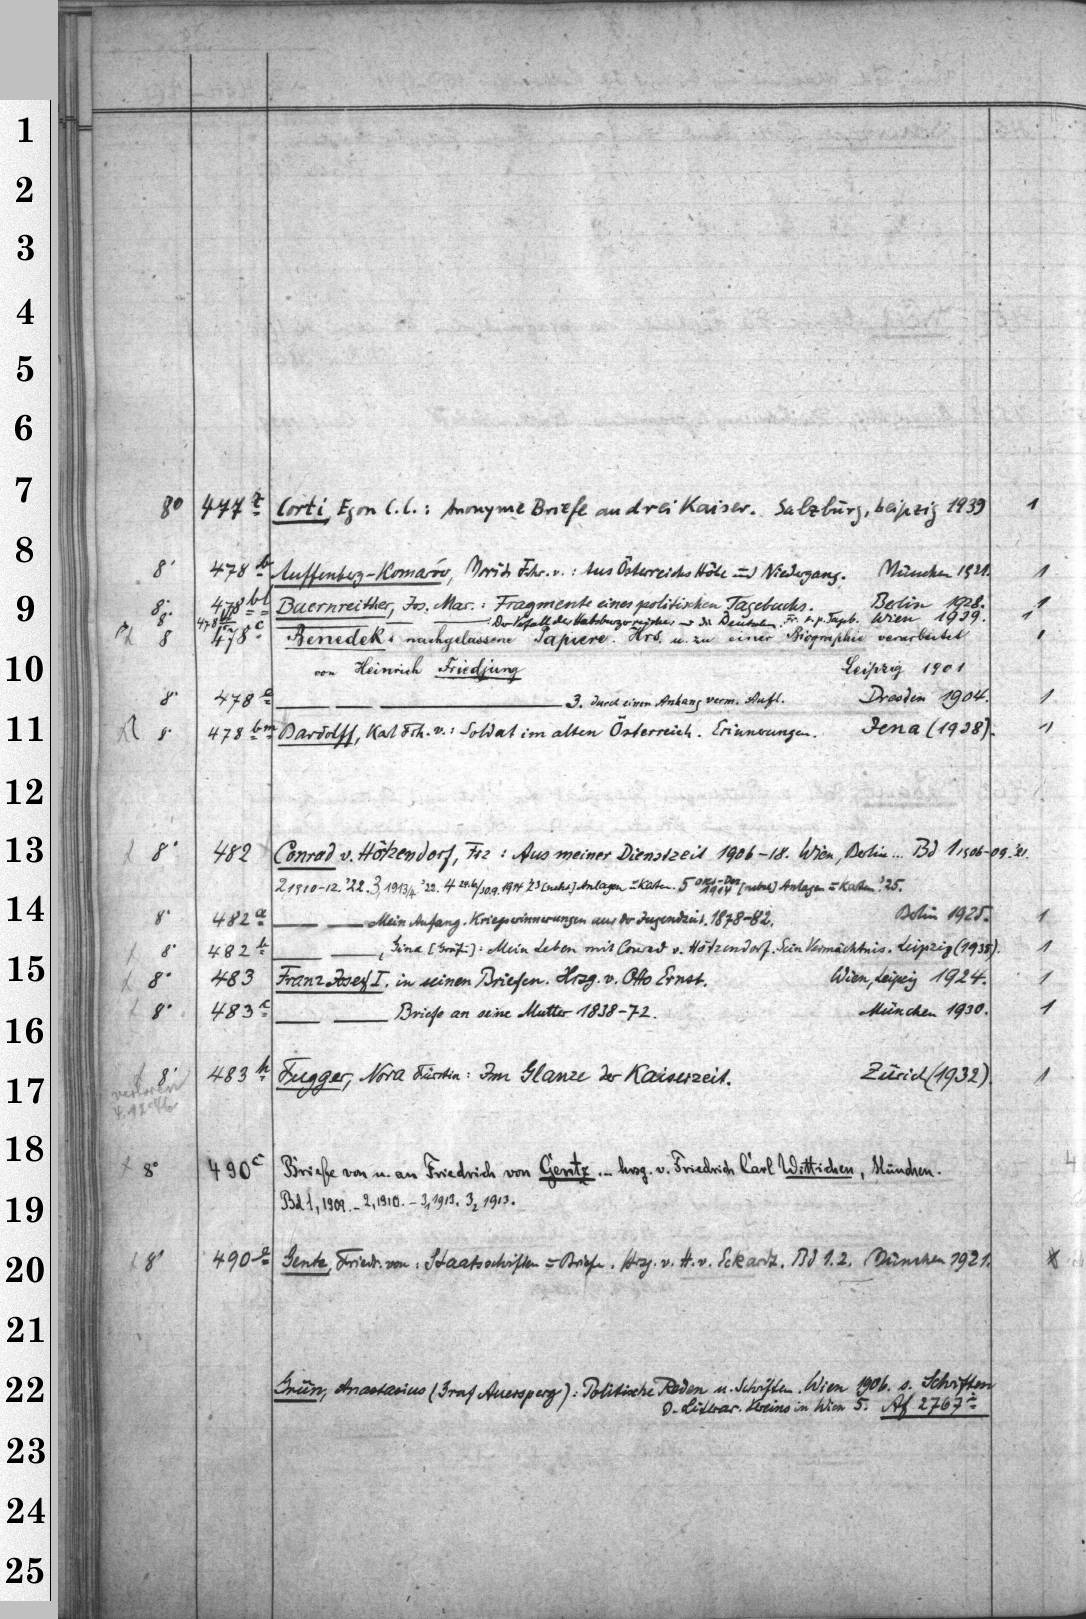 1
2
3
4
5
6
7
8° 477 a Corti, Egon C. C.: Anonyme Briefe an drei Kaiser. Salzburg, Leipzig 1939 1
8
8° 478 b Auffenberg-Komarów, Frh. v.: Aus Österreichs Höhe und Niedergang. München 1921. 1
9
8° 478 bl Baernreither, Jos. Mar.: Fragmente eines politischen Tagebuchs. Berlin 1928. 1
8° 478 Der Verfall des Habsburgerreiches u. die Deutschen. Fr. e. p. Tageb. Wien 1939. 1
8 478 c Benedeks nachgelassene Papiere. Hrs. u. zu einer Biographie verarbeitet 1
10
von Heinrich Friedjung Leipzig 1901
8° 478 e 3. durch einen Anhang verm. Aufl. Dresden 1904. 1
11
8° 478 bm Bardolff, Karl Frh. v.: Soldat im alten Österreich. Erinnerungen. Jena (1938). 1
12
13
8° 482 Conrad v. Hötzendorf, Frz: Aus meiner Dienstzeit 1906-18. Wien, Berlin... Bd 1 1906-09. '21.
2 1910-12. '22. 3 1913/4 '22. 4 24.6/30.9.1914 '23 [nebst] Anlagen = Karten. 5 Okt-Dez 1914 [nebst] Anlagen = Karten. '25.
14
8° 482 a Mein Anfang. Kriegserinnerungen aus der Jugendzeit. 1878-82. Berlin 1925. 1
8° 482 b , Gina [Gräfi]: Mein Leben mit Conrad v. Hötzendorf. Sein Vermächtnis. Leipzig (1935). 1
15
8° 483 Franz Josef I. in seinen Briefen. Hrzg. v. Otto Ernst. Wien, Leipzig 1924. 1
8° 483 c Briefe an seine Mutter 1838-72. München 1930. 1
16
8° 483 h Fugger, Nora Fürstin: Im Glanze der Kaiserzeit. Zürich (1932). 1
17
verloren
18
8° 490 c Briefe von u. an Friedrich von Gentz ... hrsg. v. Friedrich Carl Wittichen, München.
19
Bd 1, 1909. - 2, 1910. - 3,1 1913. 3,2 1913.
20
8° 490 a Gentz, Friedr. von: Staatsschriften = Briefe. Hrzg. v. H. v. Eckardt. Bd 1.2. München 1921.
21
22
Grün, Anastasius (Graf Auersperg): Politische Reden u. Schriften. Wien 1906. s. Schriften
d. Literar. Vereins in Wien 5. Af 2767 i
23
24
25